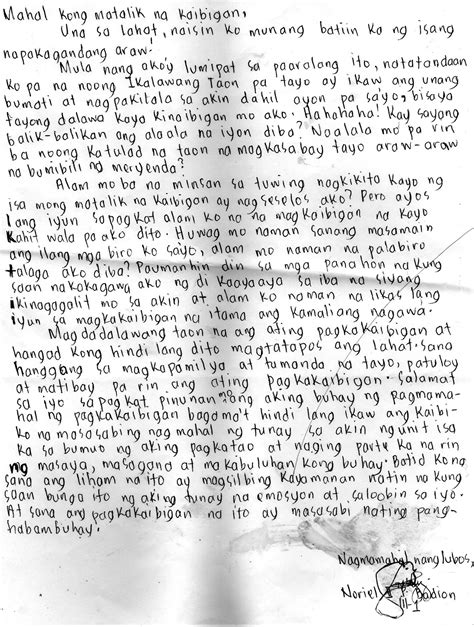 Mahal kong matalik na kaibigan,
Una sa lahat, naisin ko munang batiin ka ng isang
napakagandang araw.
Mula nang ako'y lumipat sa paaralang ito, natatandaan
ko pa na noong Ikalawang Taon pa tayo ay ikaw ang unang
bumati at nagpakilala sa akin dahil ayon pa sa'yo, bisaya
tayong dalawa kaya kinaibigan mo ako. Hahahaha! Kay sayang
balik-balikan ang alaala na iyon diba? Naalala mo pa rin
ba noong katulad na taon na magkasabay tayo araw-araw
na bumibili ng meryenda?
Alam mo ba na minsan sa tuwing nagkikita kayo ng
isa mong matalik na kaibigan ay nagseselos ako? Pero ayos
lang iyun sapagkat alam ko na na magkaibigan na kayo
kahit wala pa ako dito. Huwag mo naman sanang masamain
ang ilang mga biro ko saiyo, alam mo naman na palabiro
talaga ako diva? Paumanhin din sa mga panahon na kung
saan nakakagawa ako ng di kaayaaya sa iba na siyang
ikinagagalit mo sa akin at alam ko naman na likas lang
iyun sa magkakaibigan na itama ang kamaliang nagawa.
Magdadalawang taon na ang ating pagkakaibigan at
hangad kong hindi lang dito magtatapos ang lahat. Sana
hanggang sa magkapamilya at tumanda na tayo, patuloy
at matibay pa rin ang ating pagkakaibigan. Salamat
sa iyo sapagkat pinunan mo ang aking buhay ng pagmama-
hal ng pagkakaibigan bagama't hindi lang ikaw ang kaibi-
ko na masasabing nagmahal ng tunay sa akin ngunit isa
ka sa bumuo ng aking pagkatao at naging parte ka na rin
ng masaya, masagana at makabuluhan kong buhay. Batid kong
sana ang liham na ito ay magsilbing kayamanan natin na kung
saan bunga ito ng aking tunay na emosyon at saloobin sa iyo.
At sana ang pagkakaibigan na ito ay masasabi nating pang-
habambuhay.
Nagmamahal nang lubos,
Noriel Badion
III-1